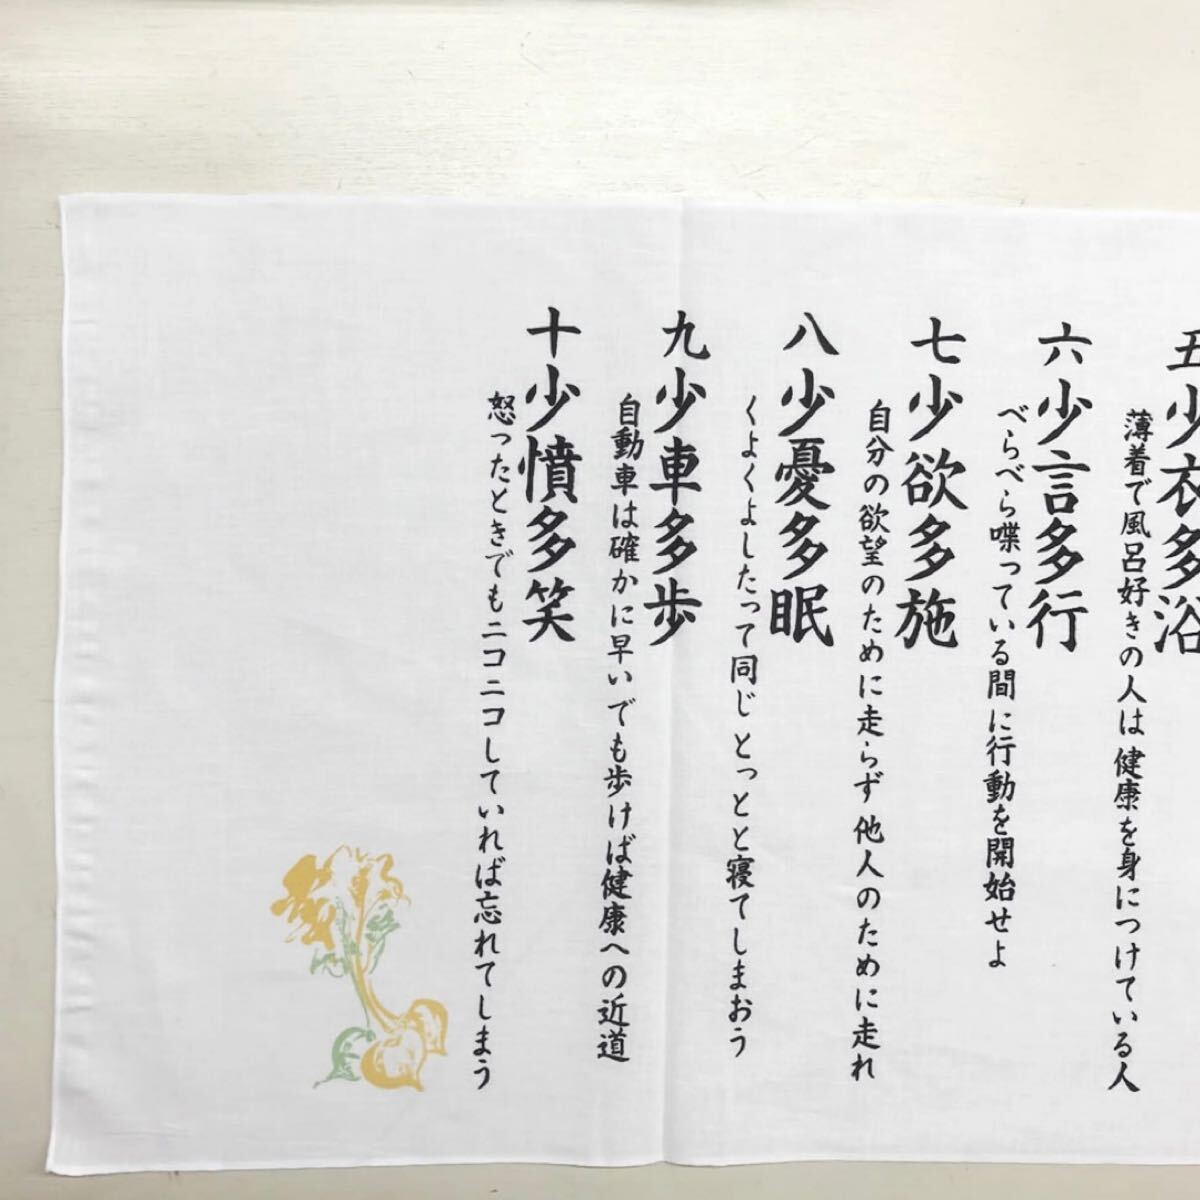 五少衣多浴
薄着で風呂好きの人は健康を身につけている人
六少言多行
べらべら喋っている間に行動を開始せよ
七少欲多施
自分の欲望のために走らず他人のために走れ
八少憂多眠
くよくよしたって同じとっとと寝てしまおう
九少車多歩
自動車は確かに早いでも歩けば健康への近道
十少憤多笑
怒ったときでもニコニコしていれば忘れてしまう